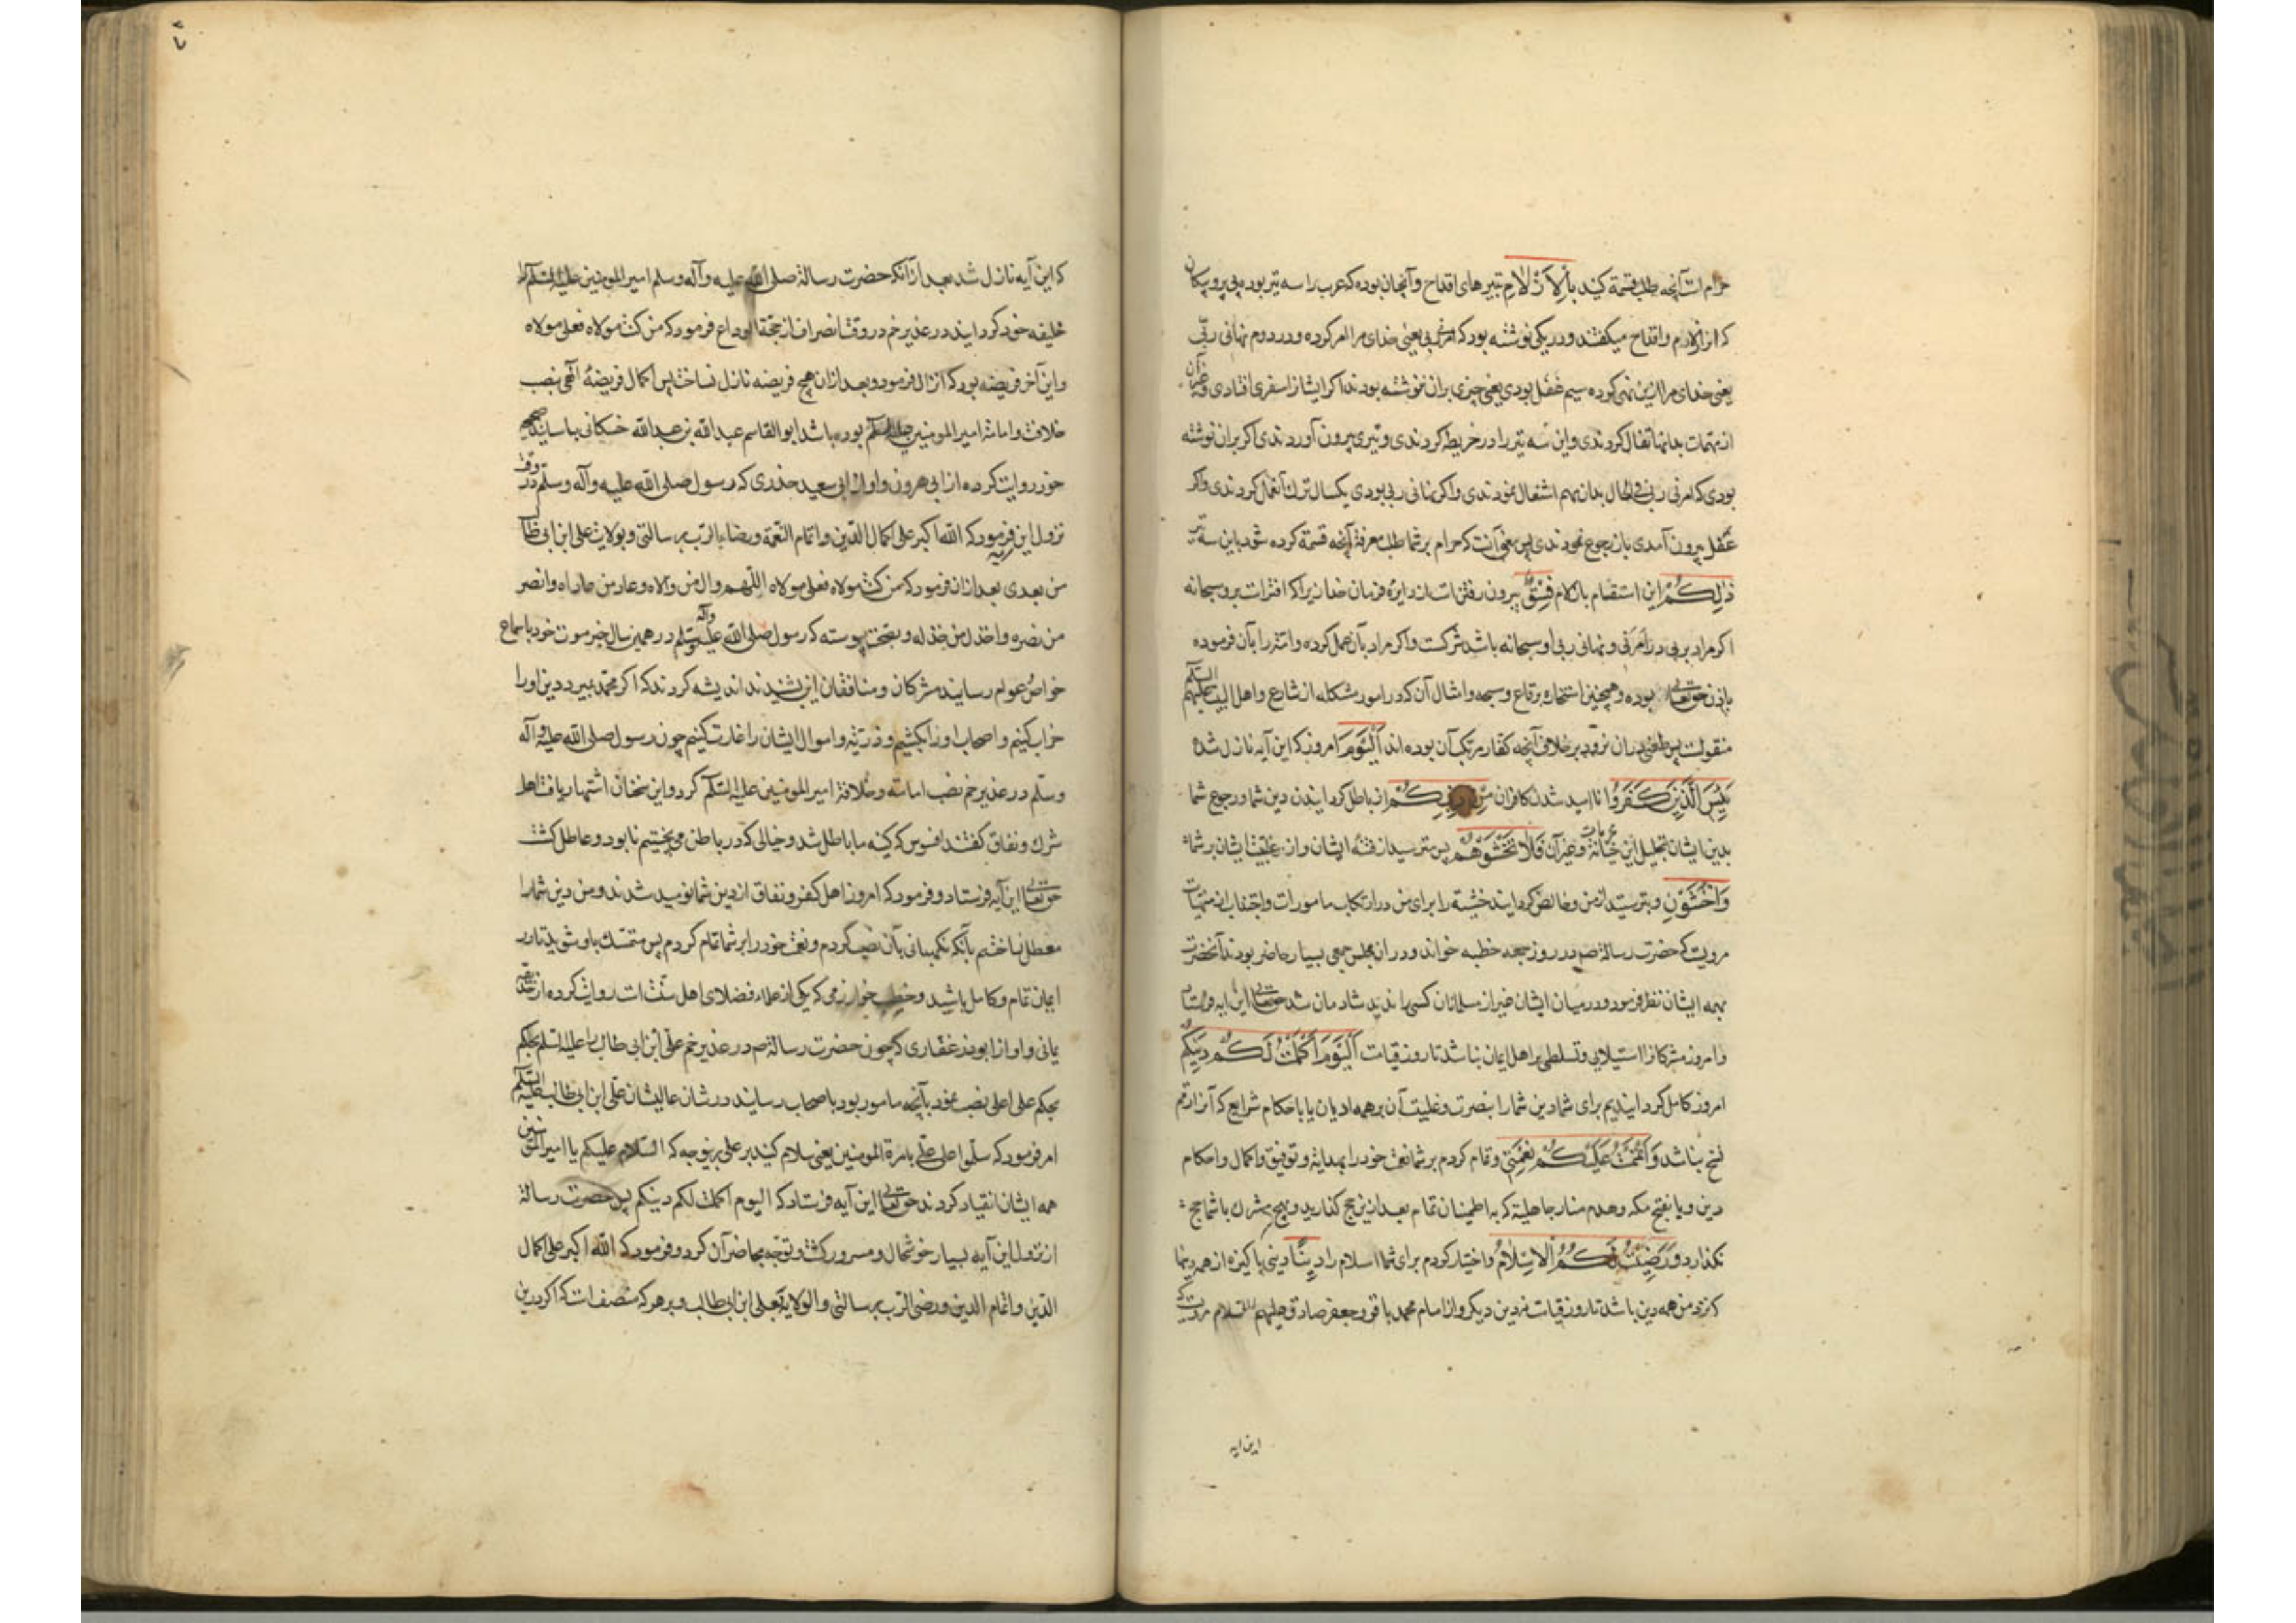 حرام است آنچه طلب قسمة کنید بِالْاَزْلامِ بتیرهای اقداح و آنچنان بوده که عرب را سه تیر بوده بی پر و پیکان
که انرا ازلام و اقداح میکفتند و در یکی نوشته بود که امرنی ربی یعنی خدای مرا امر کرده و در دوم نهانی ربّی
یعنی خدای مرا ازین نهی کرده سیم غفل بودی یعنی چیزی بران ننوشته بودند اکر ایشانرا سفری افتادی و غیر آن
از مهمات بدانها تفال کردندی و این سه تیر را در خریطه کردندی و تیری بیرون آوردندی اکر بران نوشته
بودی که امرنی ربی فی الحال بدان مهم اشتغال نمودندی و اکر نهانی ربی بودی یکسال ترک آنعمل کردندی و اکر
غفل بیرون آمدی باز رجوع نمودندی پس معنی آنست که حرام بر شما طلب معرفة آنچه قسمة کرده شود باین سه تیر
ذٰلِکُمْ این استقسام بازلام فِسْقٌ بیرون رفتن است از دایرهٔ فرمان خدا زیرا که افتراست برو سبحانه
اکر مراد بربی در اَمَرَنی و نهانی ربی او سبحانه باشد و شرکست و اکر مراد بآن عمل کرده و امّة را بآن فرموده
باذن حق تعالی بوده و همچنین استخاره برقاع و سبحه و امثال آن که در امور مشکله از شارع و اهل البیت علیهم السلم
منقولست پس طعنی در ان نرود بر خلاف آنچه کفار مرتکب آن بوده اند اَلْیَوْمَ امروز که این آیه نازل شده
یَئِسَ الَّذینَ کَفَرُوا ناامید شدن کافران مِنْ دینِکُمْ از باطل کردانیدن دین شما و رجوع شما
بدین ایشان بتحلیل این خبائثه و غیر آن فَلا تَخْشَوْهُمْ پس مترسید از فتنهٔ ایشان و از غلبهٔ ایشان بر شما
وَاخْشَوْنِ و بترسید از من و خالص کردانید خشیة را برای من در ارتکاب مامورات و اجتناب از منهیات
مرویست که حضرت رسالة ص در روز جمعه خطبه خواند و در ان مجلس جمعی بسیار حاضر بودند آنحضرت
بهمه ایشان نظر فرمود و در میان ایشان غیر از مسلمانان کسی را ندید شادمان شد حق تعالی این ایه فرستاد
و امروز مشرکانرا استیلایی و تسلطی بر اهل ایمان نباشد تا روز قیامت اَلْیَوْمَ اَکْمَلْتُ لَکُمْ دینَکُمْ
امروز کامل کردانیدیم برای شما دین شما را بنصرت و غلبت آن بر همه ادیان یا باحکام شرایع که آنرا رقم
نسخ نباشد وَ اَتْمَمْتُ عَلَیْکُمْ نِعْمَتی و تمام کردم بر شما نعمت خود را بهدایة و توفیق و اکمال و احکام
دین و یا بفتح مکه و هدم منار جاهلیة که به اطمینان تمام بعد ازین حج کذارید و هیچ مشرک با شما حج
نکذارد وَ رَضیتُ لَکُمُ الْاِسْلامَ و اختیار کردم برای شما اسلام را دِینًا دینی پاکیزه از همه دینها
که نزد من همه دین باشد تا روز قیامت نه دین دیکر و از امام محمد باقر و جعفر صادق علیهم السلام مرویست که
این ایه
که این آیه نازل شد بعد از آنکه حضرت رسالة صلی الله علیه و آله وسلم امیر المومنین علیه السلم را
خلیفه خود کردانید در غدیر خم در وقت انصراف از حجة الوداع فرمود که من کنت مولاه فعلی مولاه
و این آخر فریضه بود که انزال فرمود و بعد ازان هیچ فریضه نازل نساخت پس اکمال فریضهٔ الهی بنصب
خلافت و امامة امیر المومنین علیه السلم بوده باشد ابو القاسم عبد الله بن عبد الله حسکانی باسانید صحیح
خود روایت کرده از ابی هرون و او از ابی سعید خدری که رسول صلی الله علیه و آله وسلم در وقت
نزول این فرمود که الله اکبر علی اکمال الدّین و اتمام النعمة و رضاء الربّ برسالتی و بولایت علی ابن ابی طالب
من بعدی بعد ازان فرمود که من کنت مولاه فعلی مولاه اللّهم وال من والاه و عاد من عاداه و انصر
من نصره و اخذل من خذله و بصحت پیوسته که رسول صلی الله علیه و آله وسلم در همین سال خبر موت خود باسماع
خواصّ و عوام رسانید مشرکان و منافقان این بشنیدند اندیشه کردند که اکر محمّد بمیرد دین او را
خراب کنیم و اصحاب او را بکشیم و ذریّة و اموال ایشان را غارت کنیم چون رسول صلی الله علیه و آله
وسلم در غدیر خم نصب امامة و خلافة امیر المومنین علیه السلم کرد و این سخنان اشتهار یافت اهل
شرک و نفاق کفتند افسوس که کینه ما باطل شد و خیالی که در باطن می پختیم نابود و عاطل کشت
حق تعالی این آیه فرستاد و فرمود که امروز اهل کفر و نفاق از دین شما نومید شدند و من دین شما را
معطل نساختم بآنکه نکهبانی بآن نصب کردم و نعمت خود را بر شما تمام کردم پس متمسّک باو شوید تا در
ایمان تمام و کامل باشید و خطیب خوارزمی که یکی از علماء فضلای اهل سنّت است روایت کرده از حذیفه
یمانی و او از ابوذر غفاری که چون حضرت رسالة ص در غدیر خم علیّ ابن ابی طالب را علیه السلم بحکم
بحکم علی اعلی نصب نمود بآنچه مامور بود باصحاب رسانید در شان عالیشان علی ابن ابی طالب علیه السلم
امر فرمود که سلّموا علی علیّ بامرة المومنین یعنی سلام کنید بر علی برینوجه که السّلام علیکم یا امیر المومنین
همه ایشان انقیاد کردند حق تعالی این آیه فرستاد که الیوم اکملت لکم دینکم پس حضرت رسالة
از نزول این آیه بسیار خوشحال و مسرور کشت و توجّه بحاضرآن کرد و فرمود که الله اکبر علی اکمال
الدّین و اتمام الدین و رضی الربّ برسالتی و الولایة لعلی ابن ابی طالب و بر هر که منصف است که اکر درین